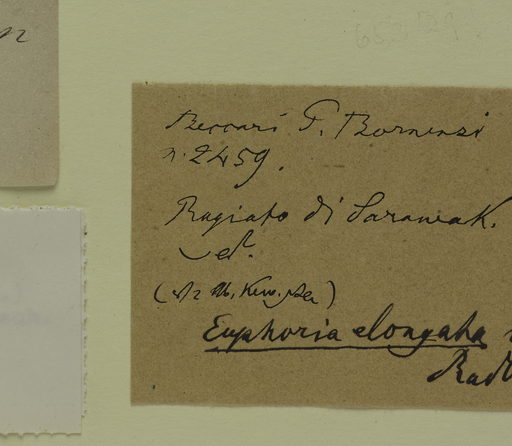 n
Beccari P. Bornensi
n. 2459.
Ragiato di Sarawak.
(
Hb. Kew.
)
Euphoria elongata
Radl